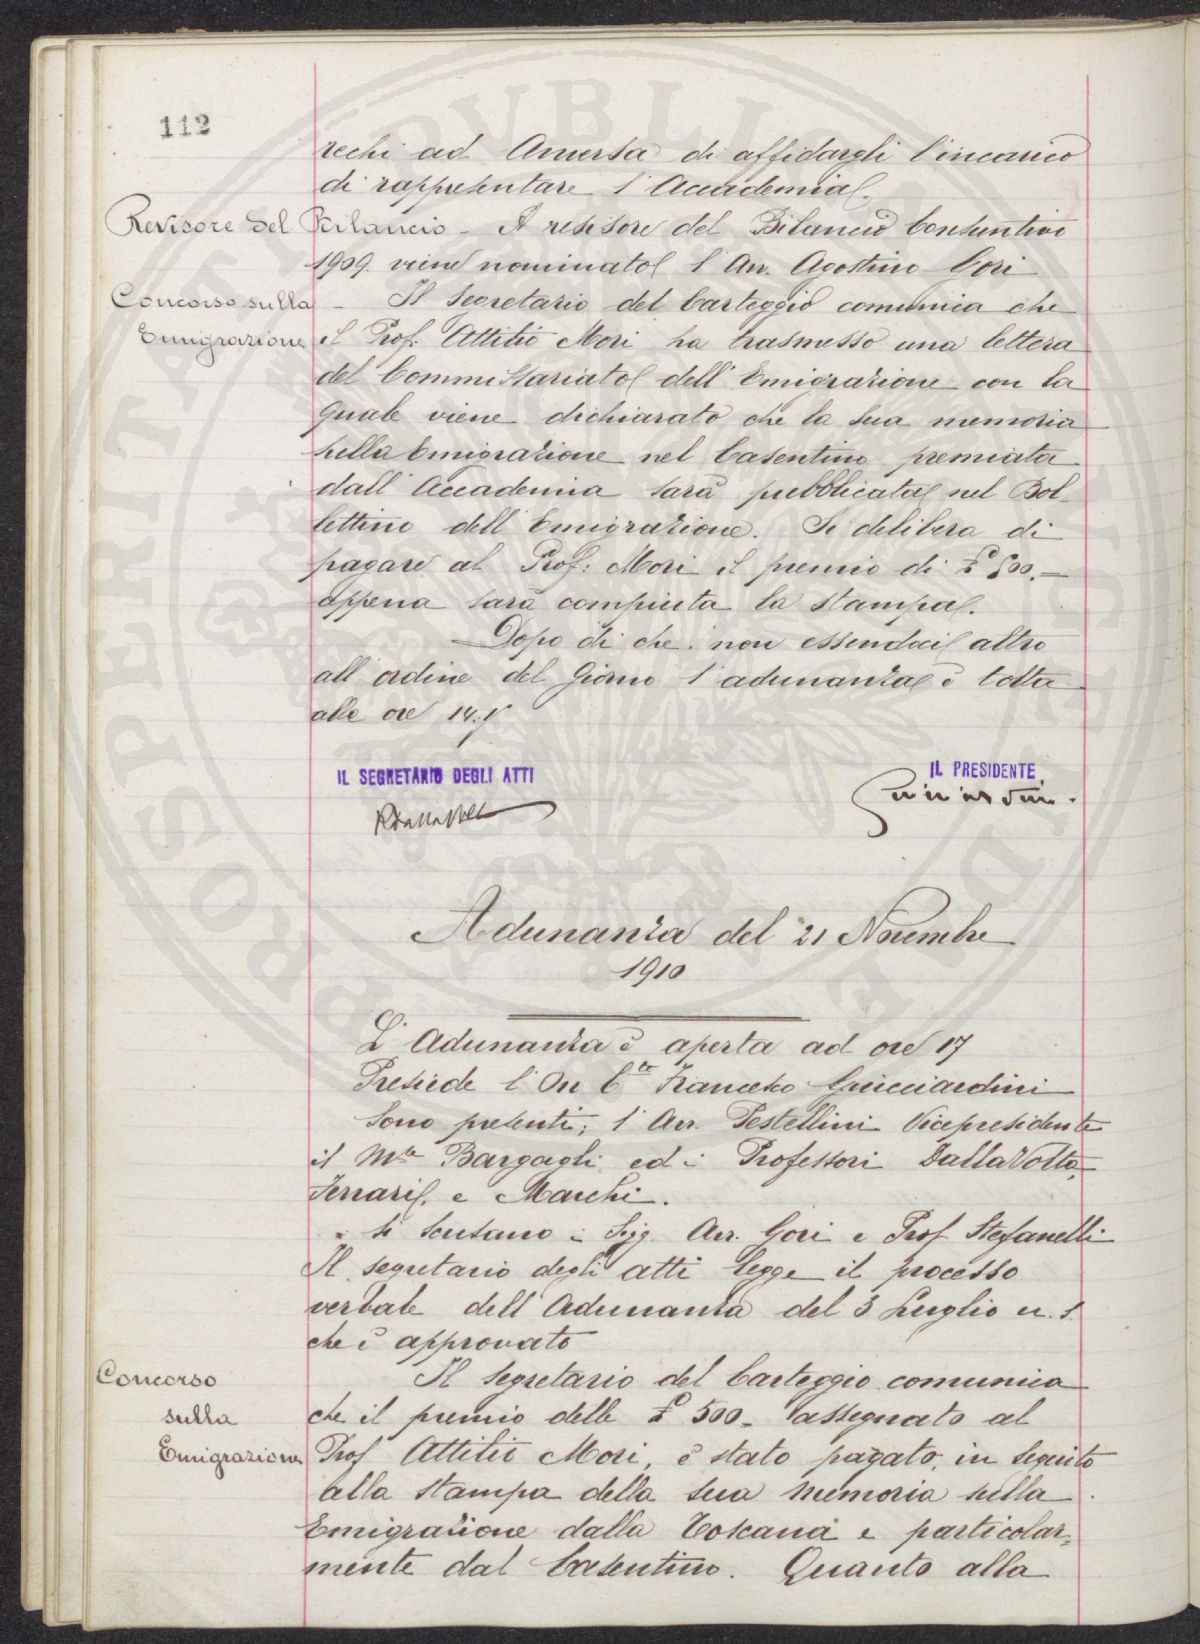 112
rechi ad Anversa di affidargli l'incarico
di rappresentare l'Accademia.
Revisore del Bilancio - A revisore del Bilancio Consuntivo
1909 viene nominato l'Avv. Agostino Gori
Concorso sulla - Il Segretario del Carteggio comunica che
Emigrazione il Prof. Attilio Mori ha trasmesso una lettera
del Commissariato dell'Emigrazione con la
quale viene dichiarato che la sua memoria
sulla Emigrazione nel Casentino premiata
dall'Accademia sarà pubblicata nel Bol-
lettino dell'Emigrazione. Si delibera di
pagare al Prof: Mori il premio di £ 500.-
appena sarà compiuta la stampa.
Dopo di che non essendoci altro
all'ordine del Giorno l'adunanza è tolta
alle ore 14.
IL SEGRETARIO DEGLI ATTI IL PRESIDENTE
RDallaVolta Guicciardini.
Adunanza del 21 Novembre
1910
L'Adunanza è aperta ad ore 17
Presiede l'On Cte Francesco Guicciardini
Sono presenti; l'Avv. Pestellini Vicepresidente
il Mse Bargagli ed i Professori DallaVolta,
Ferrari, e Marchi.
si scusano i Sigg. Avv. Gori e Prof Stefanelli
Il segretario degli atti legge il processo
verbale dell'Adunanza del 3 Luglio u. s.
che è approvato
Concorso Il Segretario del Carteggio comunica
sulla che il premio delle £ 500- assegnato al
Emigrazione Prof Attilio Mori, è stato pagato, in seguito
alla stampa della sua memoria sulla
Emigrazione dalla Toscana e particolar=
mente dal Casentino. Quanto alla